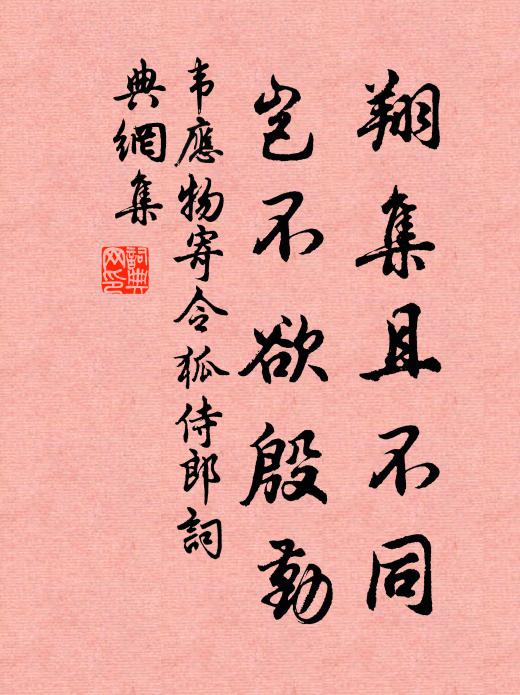 翔集且不同
岂不欲殷勤
韦應物寄令狐侍郎詞
典網集
詞典网印